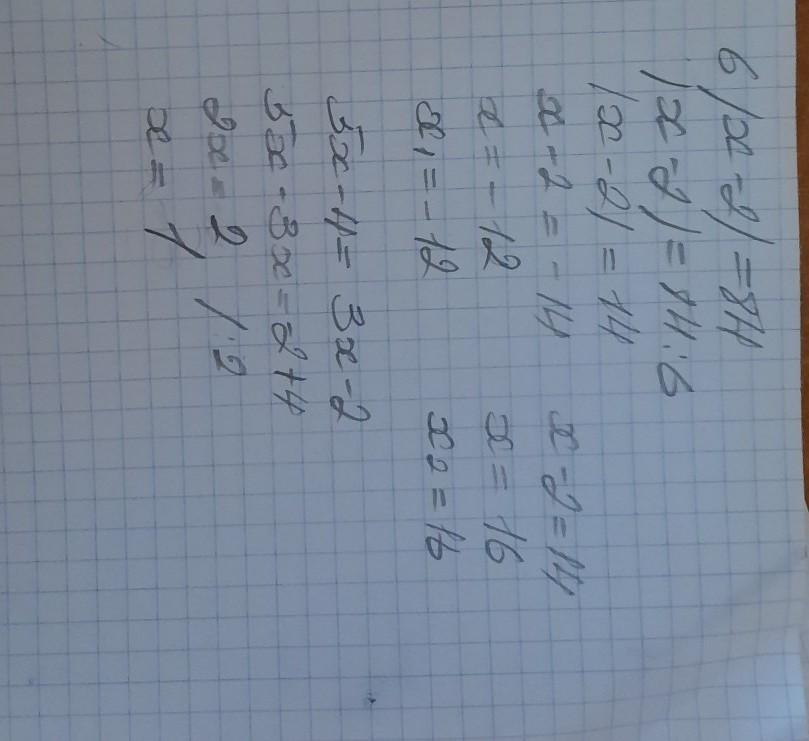 6 |x - 2| = 84
|x - 2| = 84 : 6
|x - 2| = 14
x - 2 = - 14 x - 2 = 14
x = - 12 x = 16
x₁ = - 12 x₂ = 16
5x - 4 = 3x - 2
5x - 3x = -2 + 4
2x = 2 / :2
x = 1